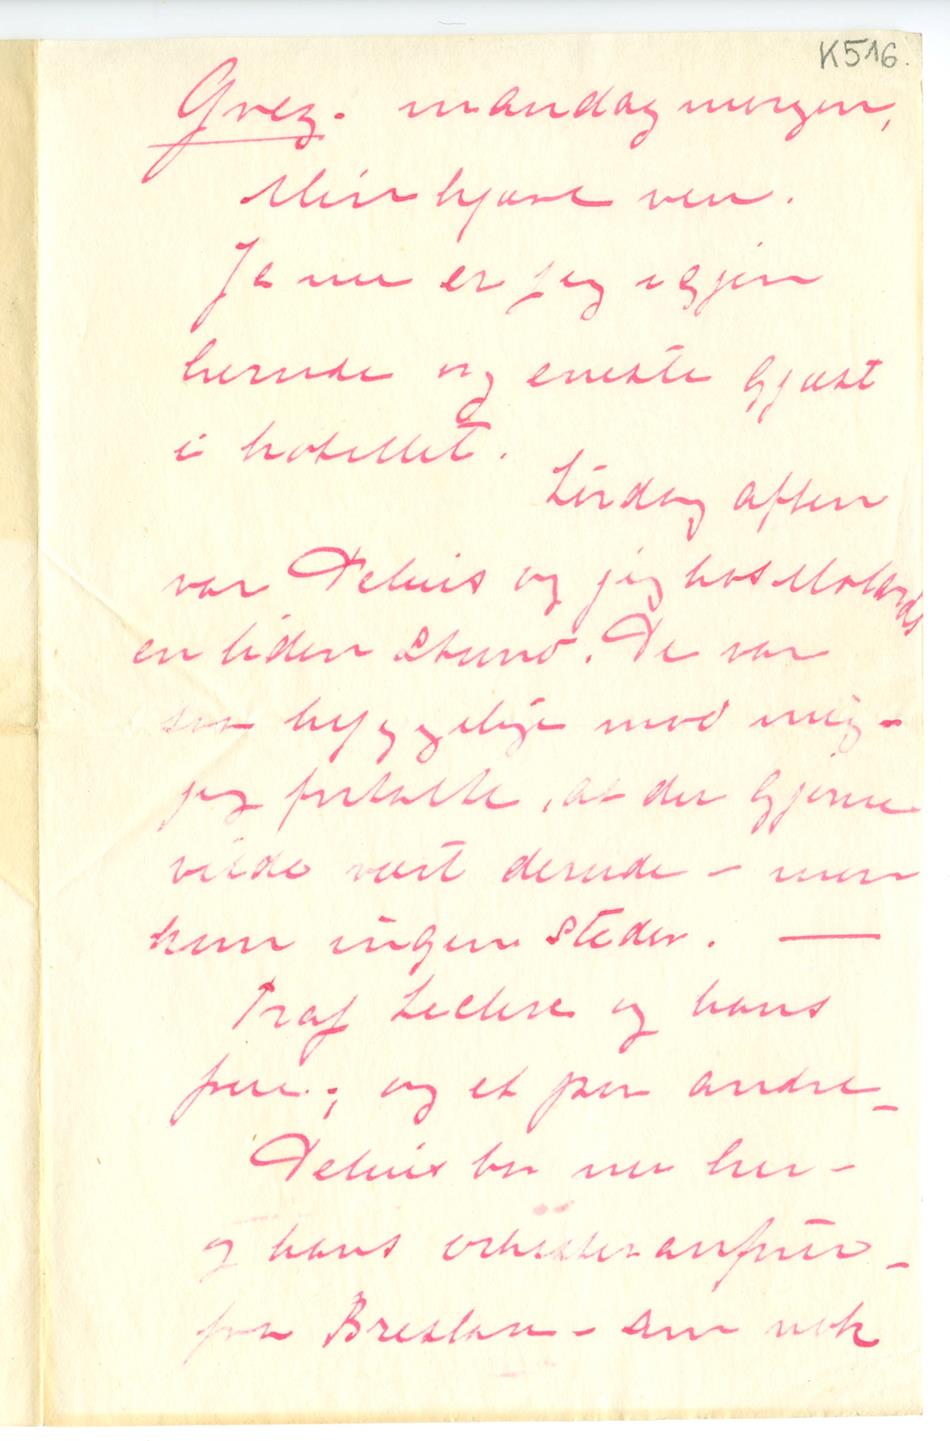 K516.
Grez. mandag morgen,
Min kjære ven.
Ja nu er jeg igjen
herude og eneste gjæst
i hotellet.
Lördag aften
var Delius og jeg hos Molards
en liden stund. De var
saa hyggelige mod mig -
jeg fortalte, at du gjerne
vilde vært derude - men
kun ingen steder. —
Traf Leclere og hans
frue; og et par andre -
Delius bor nu her -
og hans orkesteranförer -
fra Breslau - som nok